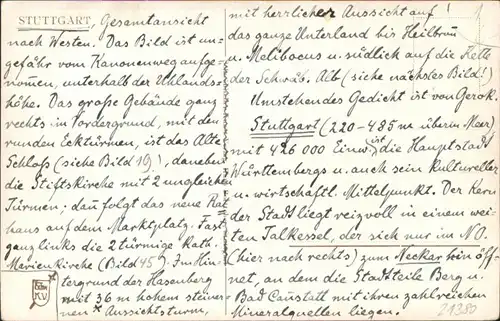 STUTTGART, Gesamtansicht
nach Westen. Das Bild ist un-
gefähr vom Kanonenweg aufge-
nommen, unterhalb der Uhlands-
höhe. Das große Gebäude ganz
rechts im Vordergrund, mit den
runden Ecktürmen, ist das Alte
Schloß (siehe Bild 19), daneben
die Stiftskirche mit 2 ungleichen
Türmen; dann folgt das neue Rat-
haus auf dem Marktplatz. Fast
ganz links die 2türmige Kath.
Marienkirche (Bild 45). Im Hin-
tergrund der Hasenberg
mit 36 m hohem steiner-
nen * Aussichtsturm,
mit herrlicher Aussicht auf!
das ganze Unterland bis Heilbronn
u. Melibocus u. südlich auf die Kette
der Schwäb. Alb (siehe nächstes Bild!)
Umstehendes Gedicht ist von Gerok.
Stuttgart (220-485 m über m Meer)
mit 426 000 Einw. ist die Hauptstadt
Württembergs u. auch sein kultureller
u. wirtschaftl. Mittelpunkt. Der Kern
der Stadt liegt reizvoll in einem wei-
ten Talkessel, der sich nur im NO.
(hier nach rechts) zum Neckar hin öff-
net, an dem die Stadtteile Berg u.
Bad Cannstatt mit ihren zahlreichen
Mineralquellen liegen.
21380